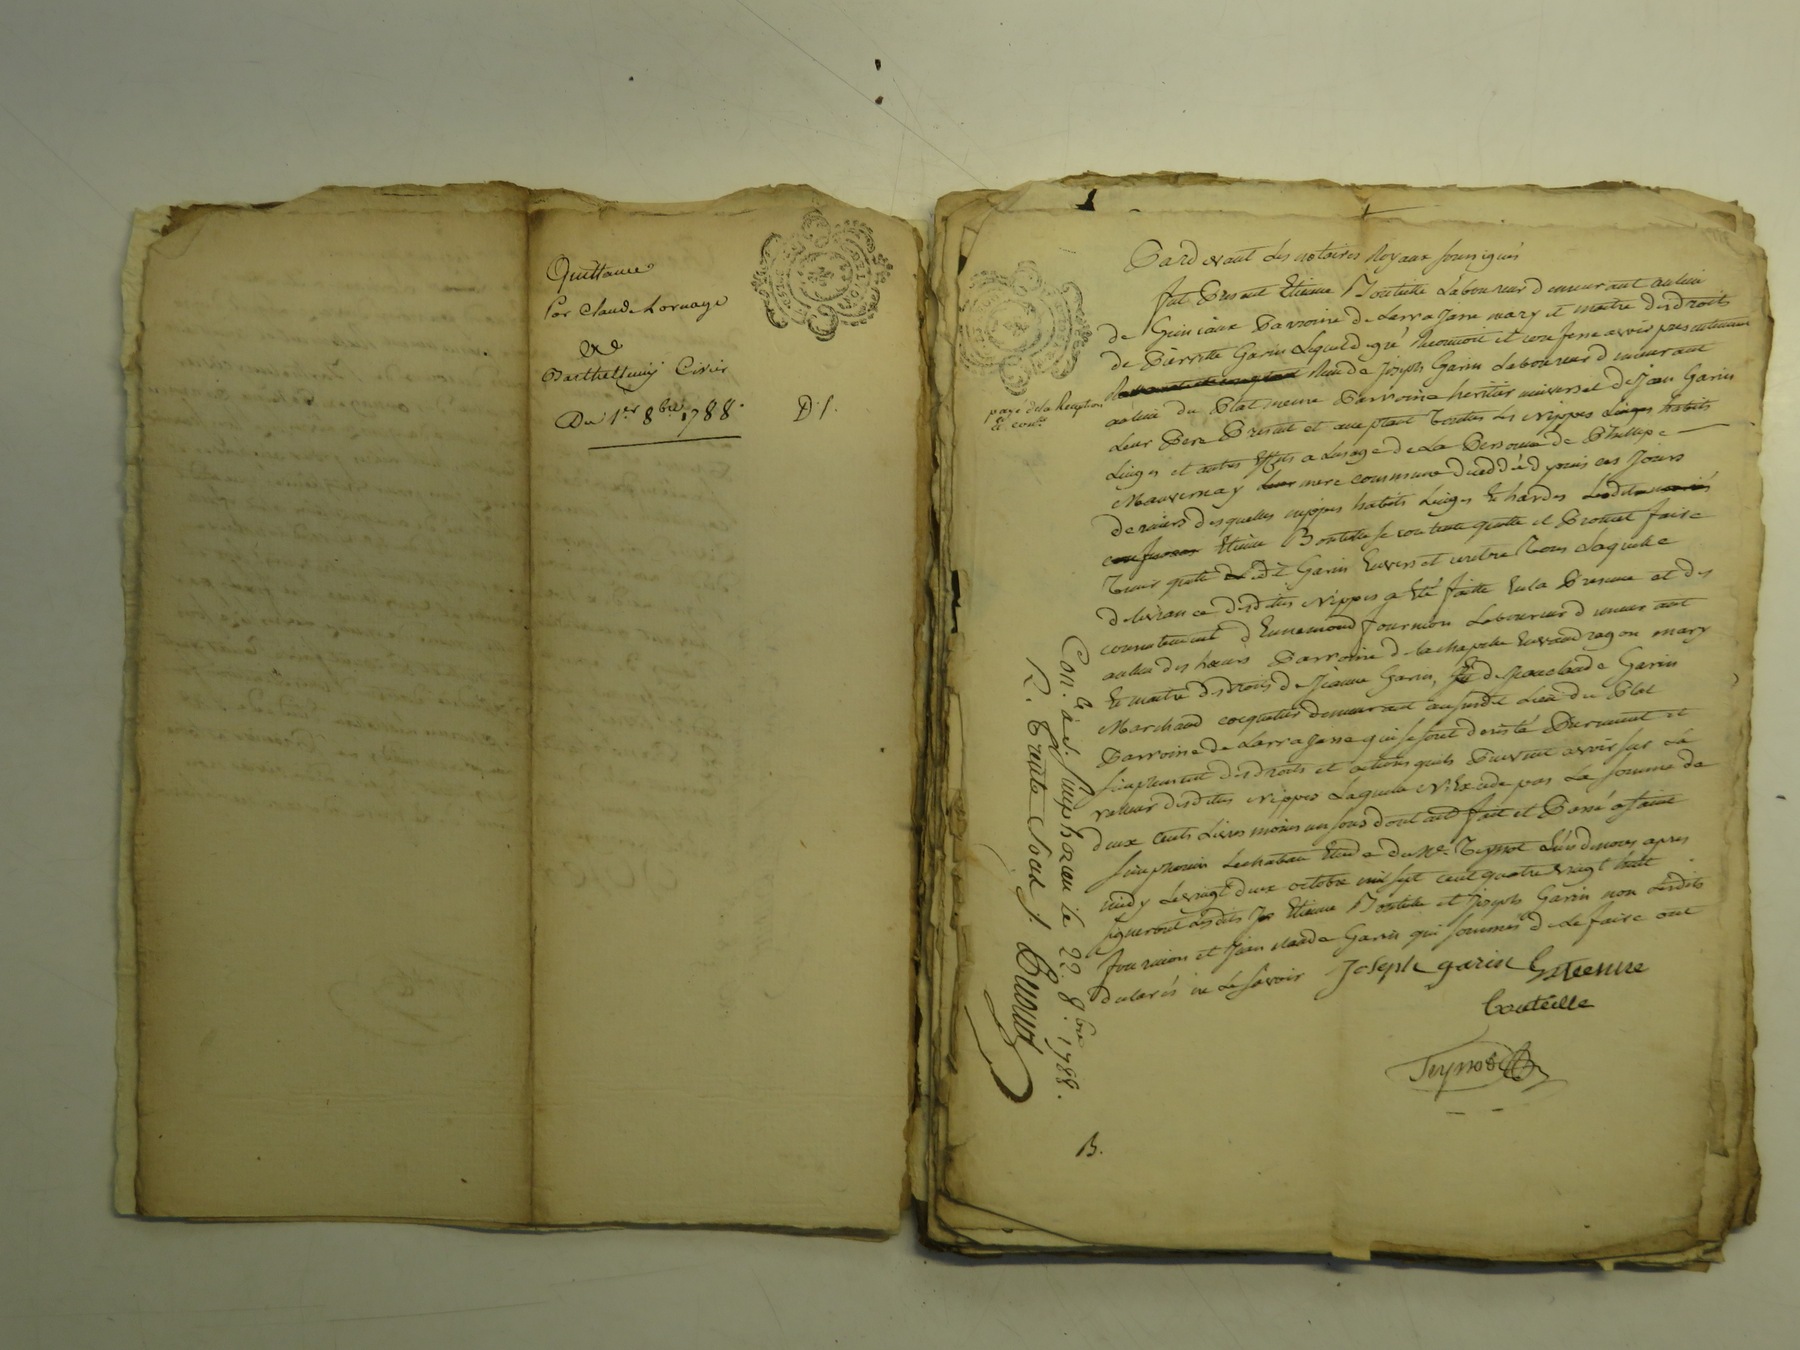 Quittance
Par Claude Lornage
A
Barthellemy Civier
Du 1er 8bre 1788. D. f.
Pardevant les notaires Royaux soussignés
fut Present Etienne Bouteille Laboureur demeurant au lieu
de Parroisse de Larrajasse mary et maitre des droits
de Pierrette Garin Lequel de gré Reconnoit et confesse avoir presentement
Reçu de Joseph Garin Laboureur demeurant
au lieu du Plat meme Parroisse heritier universel de Jean Garin
Leur Pere Present et acceptant toutes les Nippes Linges habits
Linges et autres effets a Lusage de La Personne de Phillipe
Mauvernay leur mere commune decedée depuis ces Jours
derniers desquelles nippes habits Linges Et hardes Ledit
Etienne Bouteille se contente quitte et Promet faire
tenir quitte Ledit Garin Envers et contre Tous Laquelle
delivrance desdittes Nippes a Eté faitte En la Presence et du
consentement d'Ennemond fournion Laboureur demeurant
au lieu des Parroisse de la chapelle En vaudragon mary
Et maitre des droits de Jeanne Garin, Et de Jean claude Garin
Marchand coquetier demeurant au susdit Lieu du Plat
Parroisse de Larrajasse qui se sont desisté Purement et
simplement des droits et actions quils Peuvent avoir sur La
valleur desdittes Nippes Laquelle N'Excede pas La somme de
deux cents Livres moins un sous dont acte fait et Passé a saint
simphorien Lechateau Etude de Me. Teynot L'un de nous apres
midy Le vingt deux octobre mil sept cent quatre vingt huit
signeront Lesdits Etienne Bouteille et Joseph Garin non Lesdits
fournion et Jean claude Garin qui sommés de Le faire ont
declarés ne Le savoir Joseph garin Estienne
bouteille
Teynot
payé de la Reception
et conlle
Con.lé à St. Simphorien le 22. 8bre 1788.
R. trente sous f.
B.